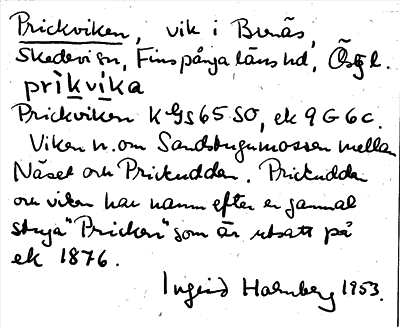 Prickviken, vik i Burås,
Skedevi sn, Finspånga läns hd, Östgl.
prikvika
Prickviken KGS65SO, ek 9G6c.
Viken n. om Sandstugumossen mellan
Näset och Prickudden. Prickudden
och viken har namn efter en gammal
stuga "Pricken" som är utsatt på
ek 1876.
Ingrid Holmberg 1953.